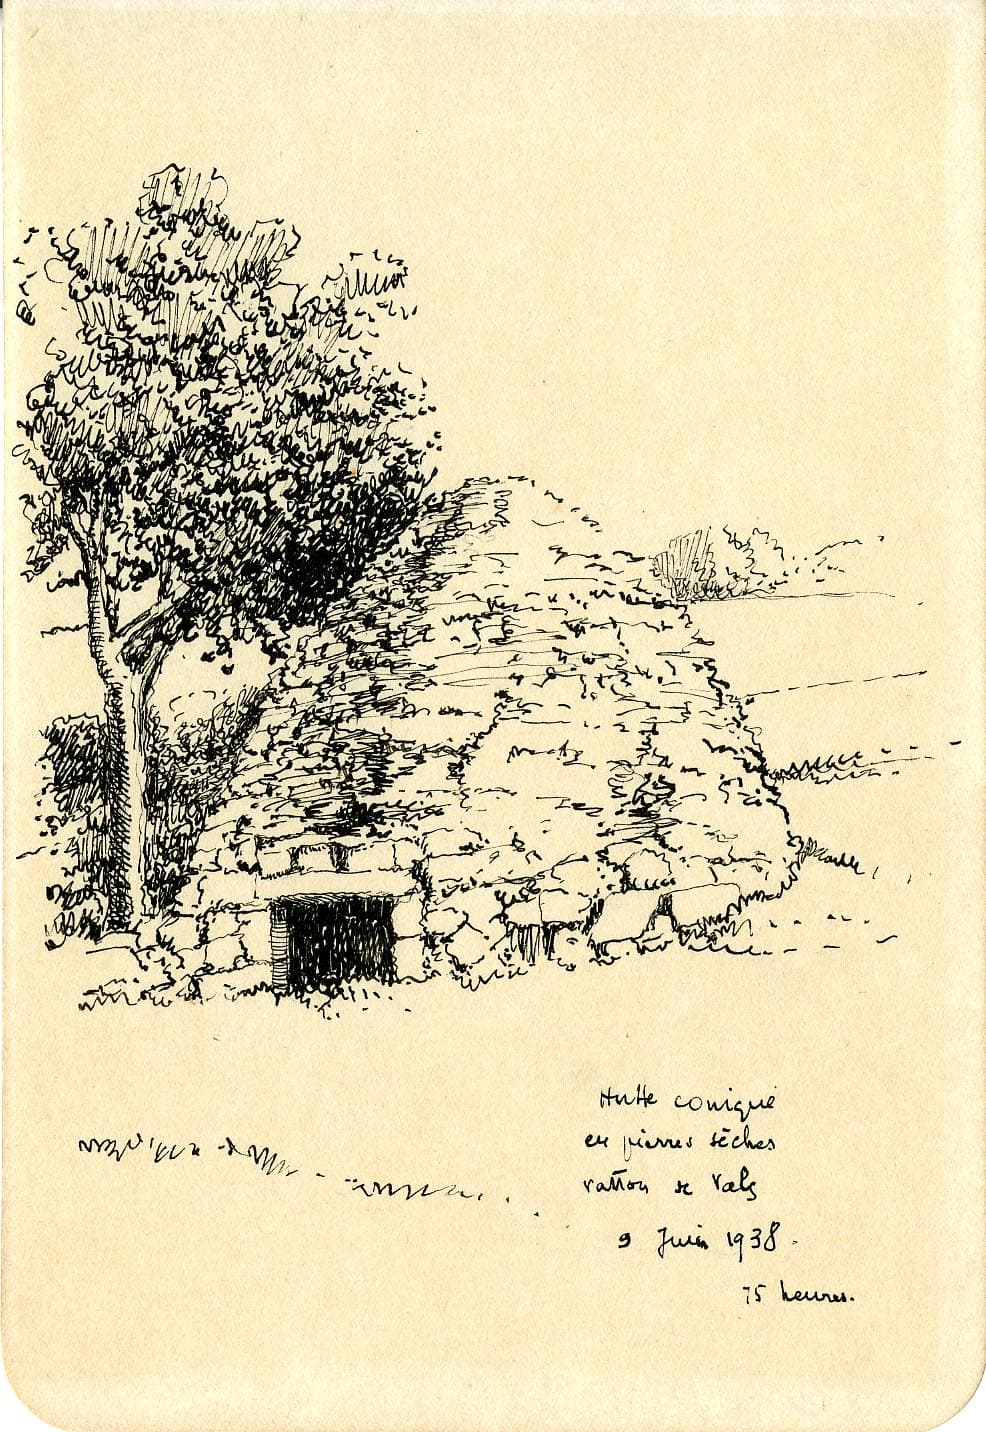 Hutte conique
en pierres sèches
vallon de Vals
9 Juin 1938.
15 heures.